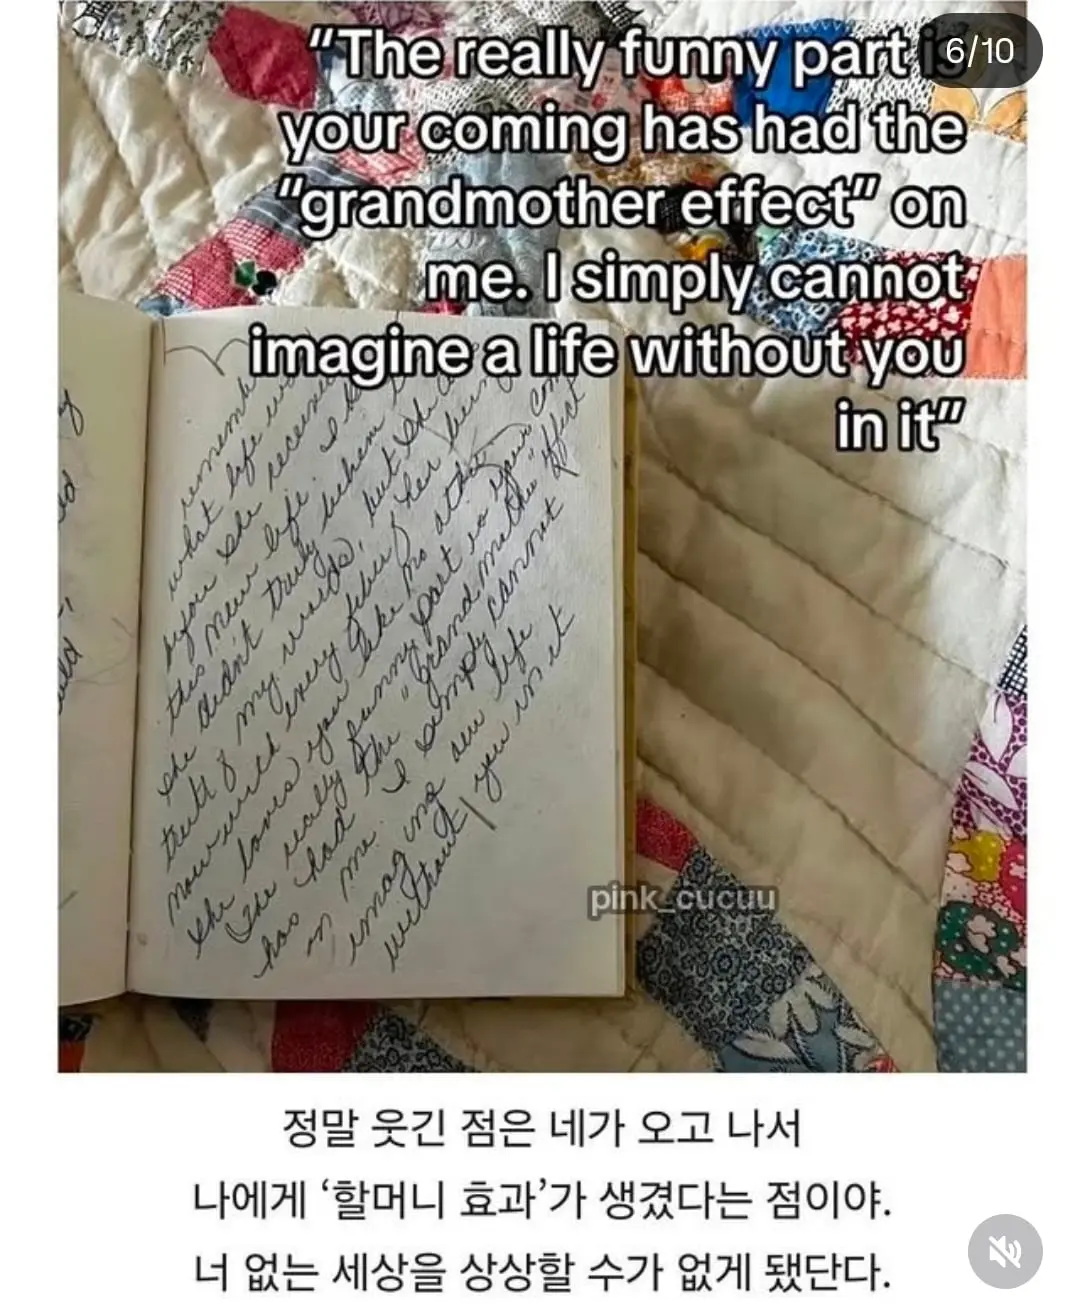 "The really funny part is
6/10
your coming has had the
"grandmother effect" on
me. I simply cannot
imagine a life without you
in it"
remember
what life was
before she received
this new life. I
she didn't truly
truth of my words, but she
now with every fiber of her being
she loves you like no other
The really funny part is your coming
has had the "grandmother effect"
on me. I simply cannot
imagine a life
without you in it
pink_cucuu
정말 웃긴 점은 네가 오고 나서
나에게 ‘할머니 효과’가 생겼다는 점이야.
너 없는 세상을 상상할 수가 없게 됐단다.